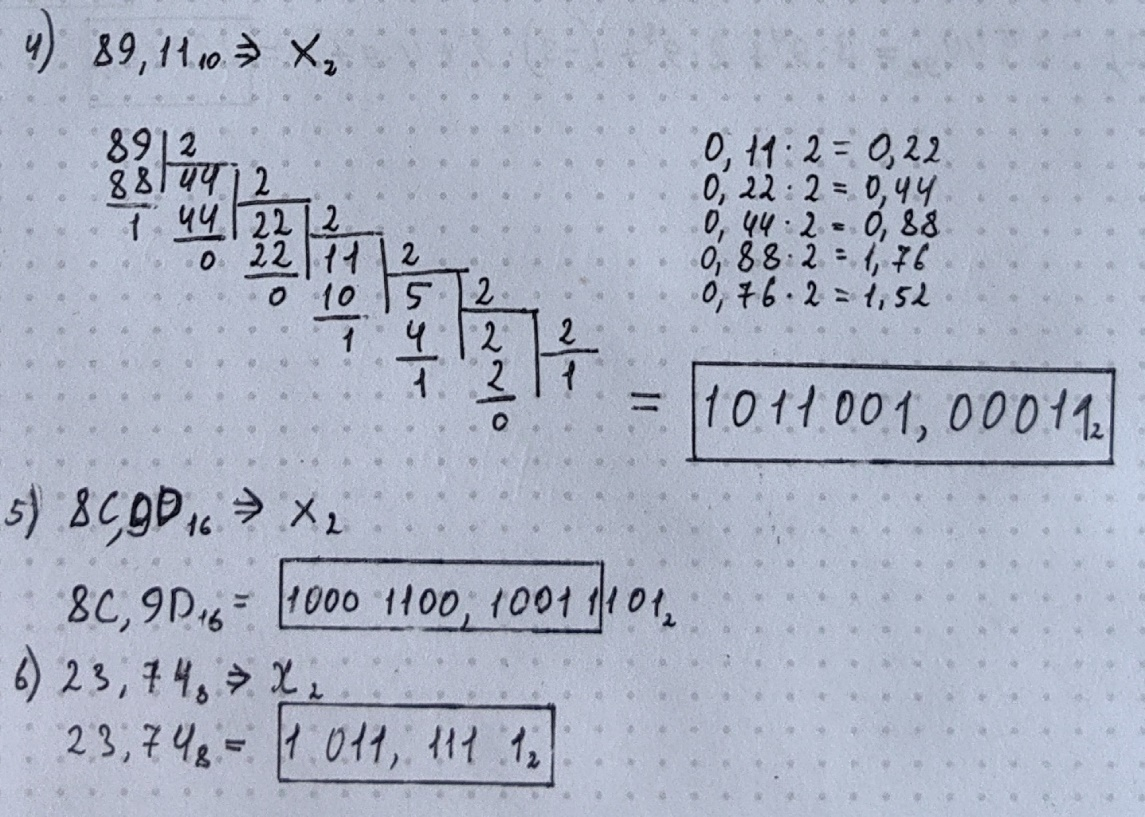 4) 89,11₁₀ ⇒ X₂
89 2
88 44 2
1 44 22 2
0 22 11 2
0 10 5 2
1 4 2 2
1 2 1
0
0,11·2 = 0,22
0,22·2 = 0,44
0,44·2 = 0,88
0,88·2 = 1,76
0,76·2 = 1,52
= 1011001,00011₂
5) 8C,9D₁₆ ⇒ X₂
8C,9D₁₆ = 1000 1100, 1001 1101₂
6) 23,74₈ ⇒ X₂
23,74₈ = 1 011, 111 1₂